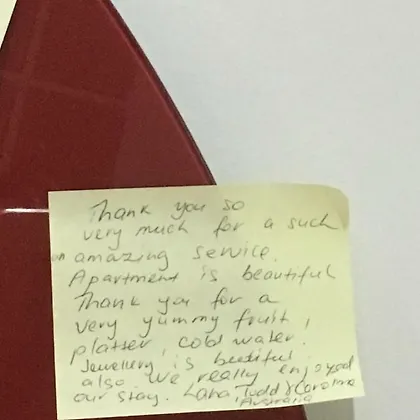 Thank you so
very much for a such
an amazing service.
Apartment is beautiful
Thank you for a
very yummy fruit,
platter, cold water.
Jewellery is beutiful
also. We really enjoyed
our stay. Lana, Todd & Carolina
Australia